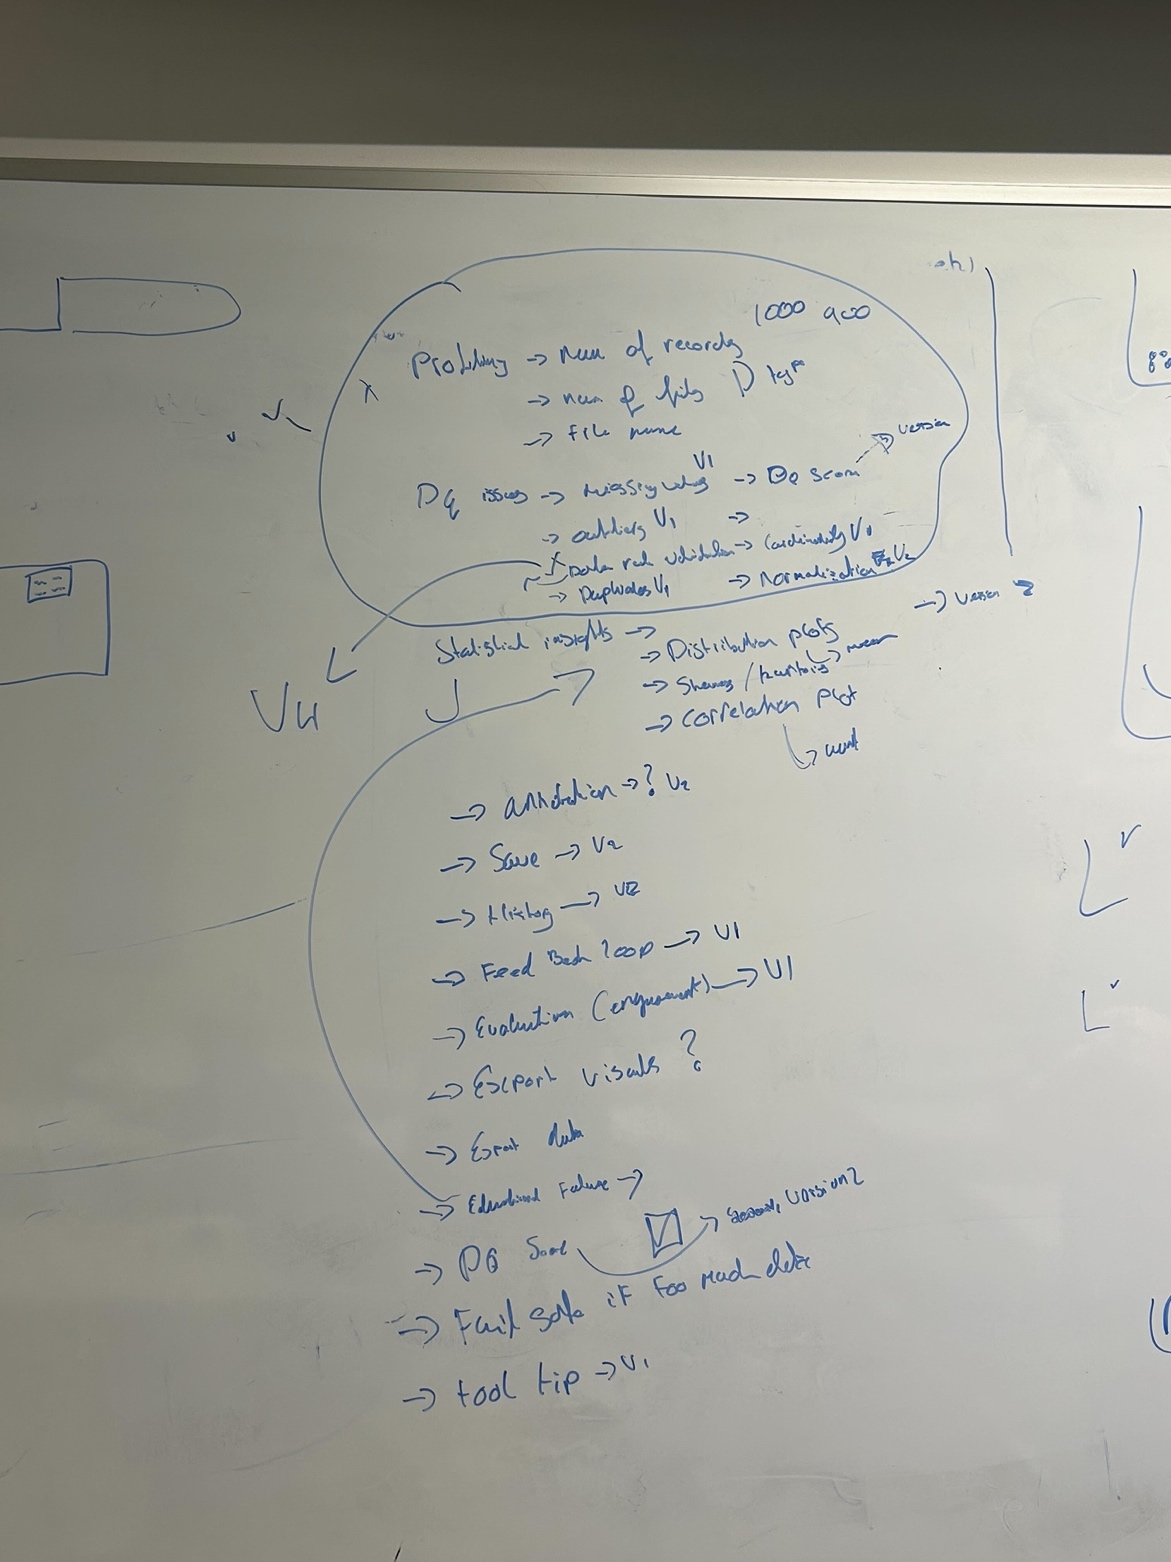 1000 900
Profiling → Num of records
→ num of files D type
→ File name
DQ issues → missing values V1 → DQ score → version
→ outliers V1 →
X Data rule validation → Cardinality V1
→ Duplicates V1 → Normalization V2
V4
Statistical insights →
→ Distribution plots → version 2
→ / kurtosis
→ correlation plot
→ annotation → ? V2
→ Save → V2
→ History → V2
→ Feed Back loop → V1
→ Evaluation ( ) → V1
→ Export visuals ?
→ Export data
→ Educational Feature →
→ DQ Score → , Version 2
→ Fail safe if too much data
→ tool tip → V1